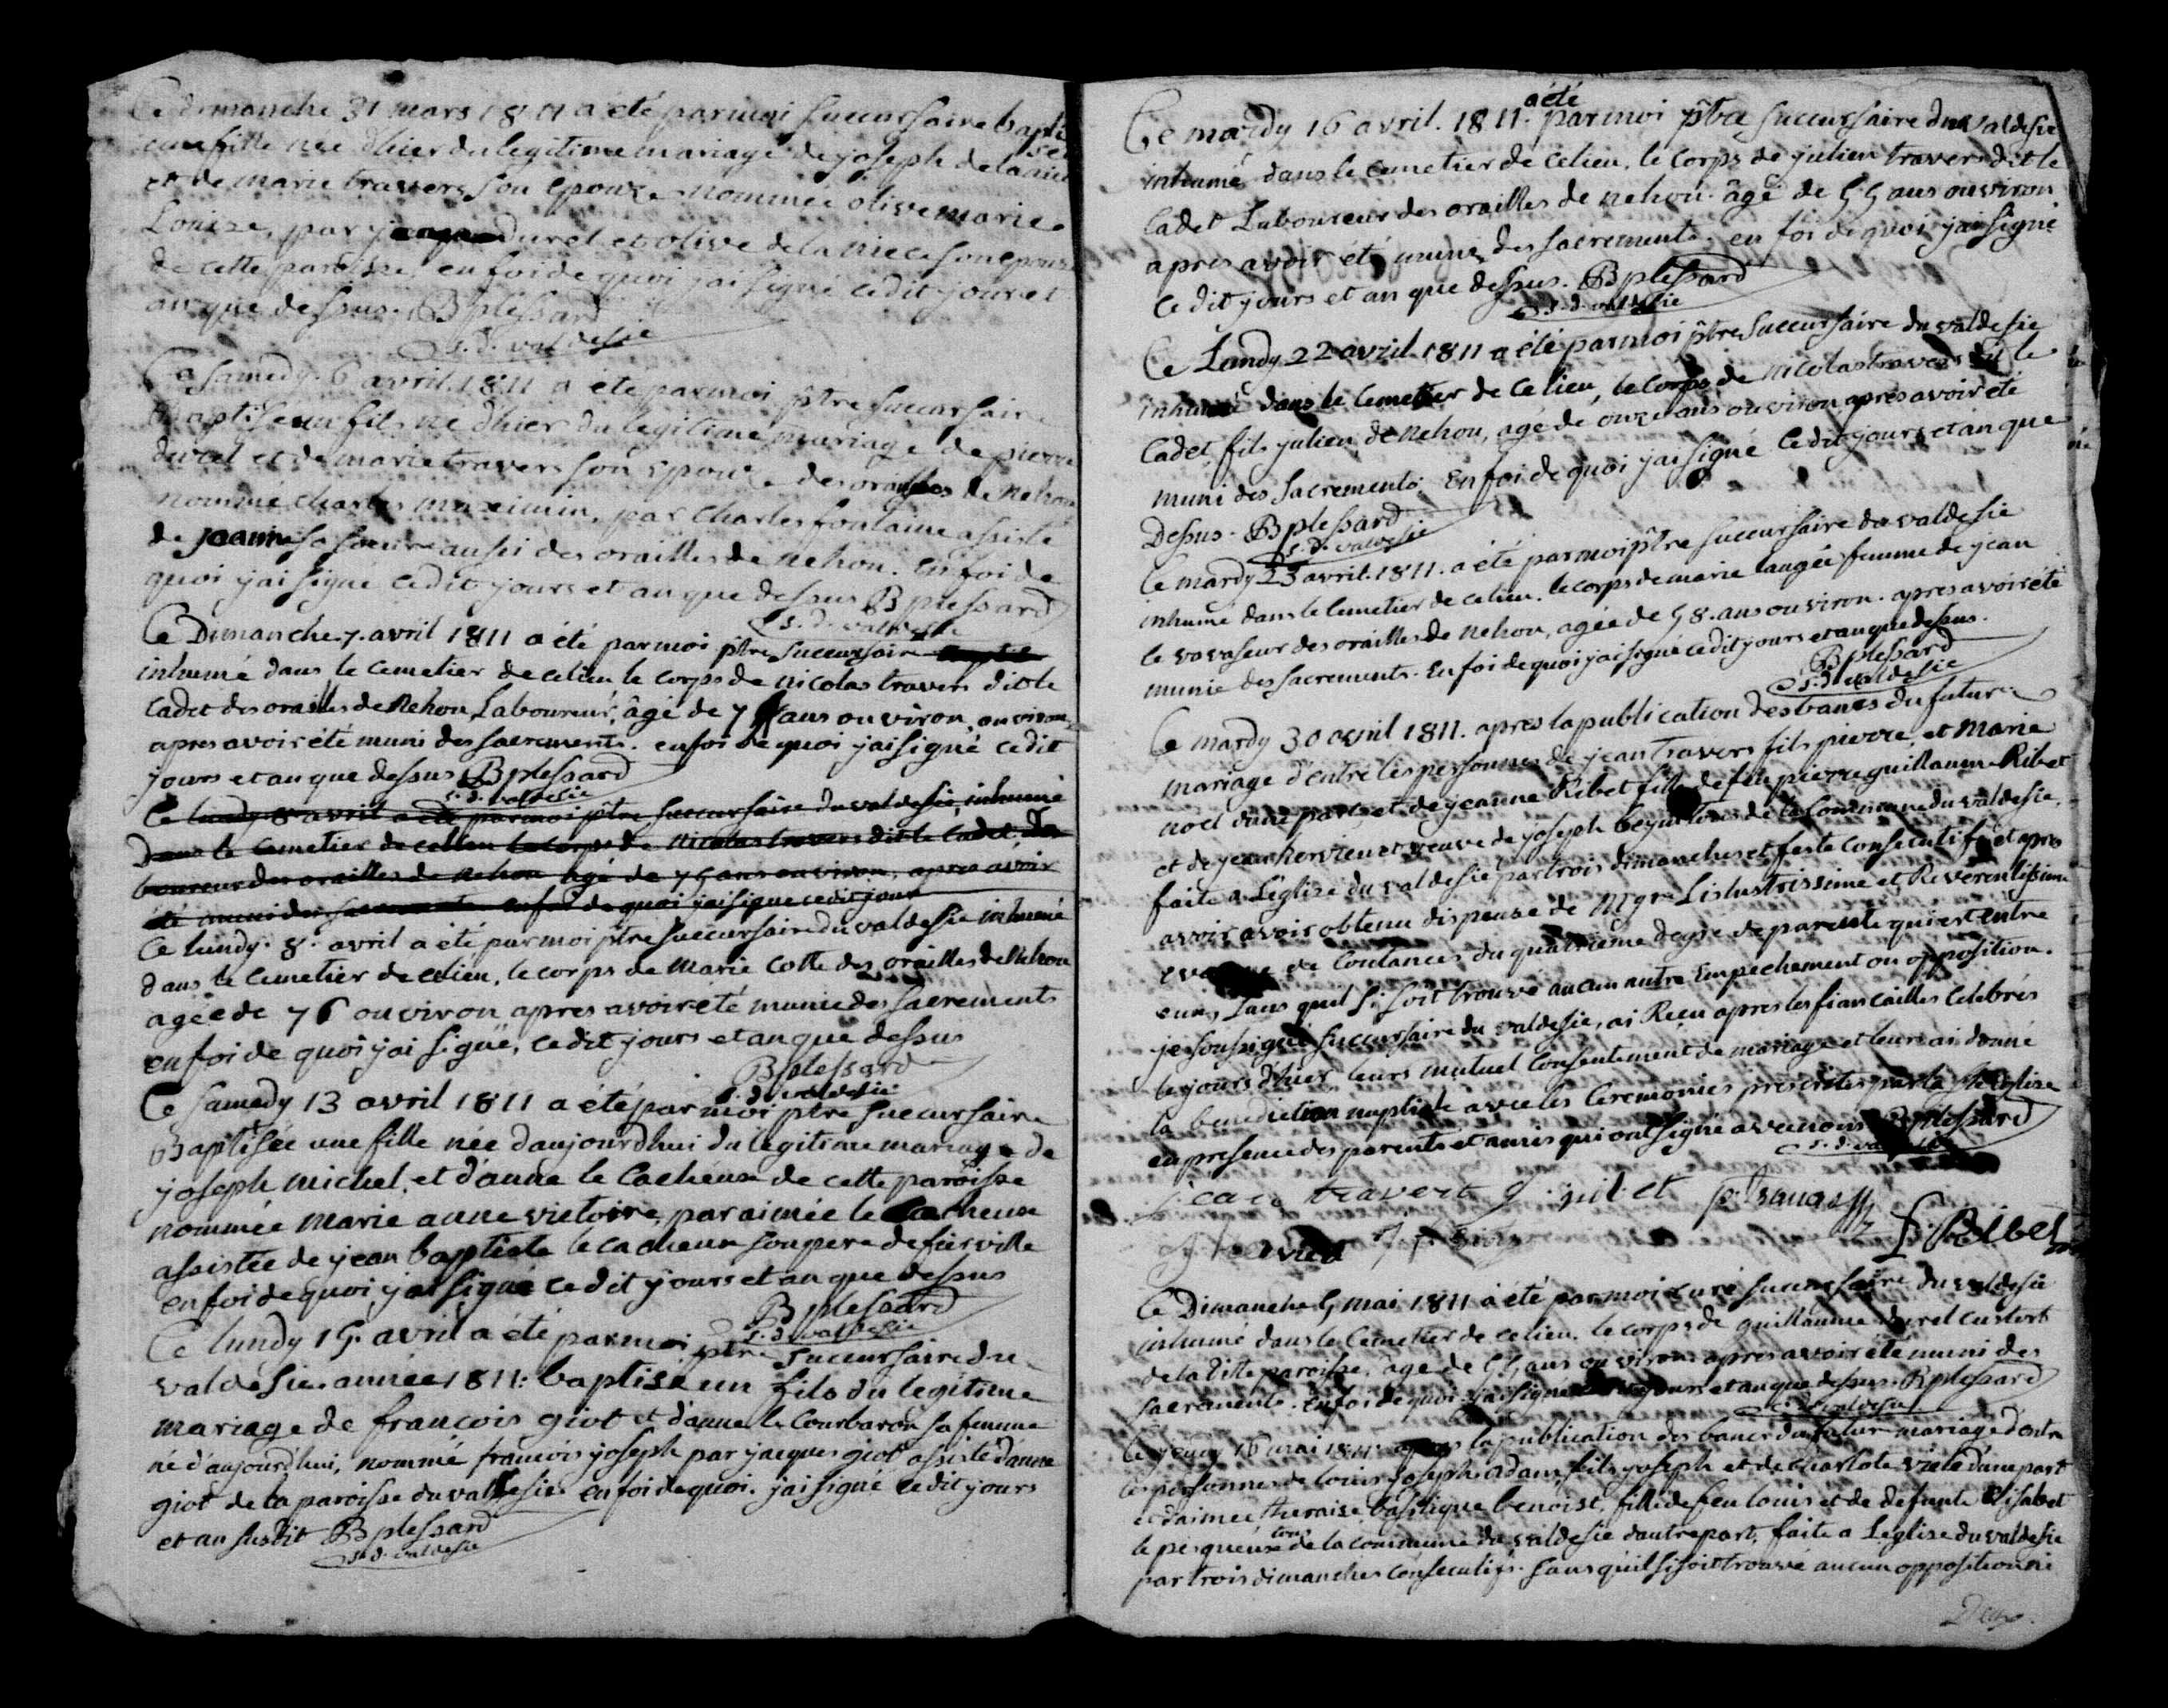 Ce dimanche 31 mars 1811 a été par moi succursaire baptisée
une fille née d'hier du legitime mariage de joseph de la niece
et de marie travers son epouze nommée olive marie
Louize, par durel et olive de la niece son epouze
de cette paroisse, en foi de quoi j'ai signé ce dit jour et
an que dessus. B plessard
s. d. valdesie
Ce samedy 6 avril 1811 a été par moi ptre succursaire
Baptisé un fils né d'hier du legitime mariage de pierre
durel et de marie travers son epouze des orailles de Nehou
nommé charles maximin, par charles fontaine assisté
de jeanne sa soeur aussi des orailles de nehou. En foi de
quoi j'ai signé ce dit jours et an que dessus B plessard
s. d. valdesie
Ce Dimanche 7. avril 1811 a été par moi ptre succursaire
inhumé dans le cemetier de ce lieu le corps de nicolas travers dit le
Cadet des orailles de Nehou Laboureur, âgé de 7 ans ouviron, ouviron,
apres avoir été muni des sacrements. en foi de quoi j'ai signé ce dit
jours et an que dessus B plessard
s. d. valdesie
Ce lundy 8 avril a été par moi ptre succursaire du valdesie, inhumé
Dans le cemetier de ce lieu le corps de nicolas travers dit le Cadet La
boureur des orailles de Nehou âgé de 75 ans ouviron, apres avoir
été muni des sacrements en foi de quoi j'ai signé ce dit jour
Ce lundy. 8. avril a été par moi ptre succursaire du valdesie inhumé
dans le cemetier de ce lieu, le corps de Marie Cotte des orailles de Nehou
agée de 76 ouviron apres avoir été munie des sacrements
en foi de quoi j'ai signé, ce dit jours et an que dessus
B plessard
s. d. valdesie
Ce samedy 13 avril 1811 a été par moi ptre succursaire
Baptisée une fille née d'aujourd'hui du legitime mariage de
joseph michel, et d'anne le Cacheux de cette paroisse
nommée marie anne victoire, par aimée le Cacheux
assistée de jean baptiste le cacheux son pere de fierville
en foi de quoi j'ai signé ce dit jours et an que dessus
B plessard
s. d. valdesie
Ce lundy 15. avril a été par moi ptre succursaire du
valdesie. année 1811: baptisé un fils du legitime
mariage de francois giot et d'anne le Courbaron sa femme
né d'aujourd'hui, nommé francois joseph par jacques giot assisté d'anne
giot de la paroisse du valdesie en foi de quoi. j'ai signé ce dit jours
et an susdit B plessard
s. d. valdesie
Ce mardy 16 avril. 1811. a été par moi ptre succursaire du valdesie
inhumé dans le cemetier de ce lieu. le corps de julien travers dit le
Cadet Laboureur des orailles de nehou. âgé de 55 ans ouviron
apres avoir été muni des sacrements. en foi de quoi j'ai signé
ce dit jours et an que dessus. B plessard
s. d. valdesie
Ce Lundy 22 avril 1811 a été par moi ptre succursaire du valdesie
inhumé dans le Cemetier de ce lieu, le corps de nicolas travers dit le
Cadet, fils julien, de Nehou, agé de onze ans ouviron apres avoir été
muni des sacrements. En foi de quoi j'ai signé Ce dit jours et an que
Dessus. B plessard
s. d. valdesie
Ce mardy 23 avril. 1811. a été par moi ptre succursaire du valdesie
inhumé dans le Cemetier de ce lieu. le corps de marie laugée femme de jean
le vavaseur des orailles de Nehou, agée de 58. ans ouviron. apres avoir été
munie des sacrements. En foi de quoi j'ai signé ce dit jours et an que dessus.
B plessard
s. d. valdesie
Ce mardy 30 avril 1811. apres la publication des bancs du futur
mariage d'entre les personnes de jean travers fils pierre et Marie
noel d'une part, et de jeanne Ribet fille de feu pierre guillaume Ribet
et de jeanne hervieu et veuve de joseph tous de la Commune du valdesie,
faite a Leglise du valdesie par trois dimanches et feste consecutifs et apres
avoir avoir obtenu dispense de Mgr. Lislustrissime et Reverendissime
evesque de Coutances du quatrieme degre de parente qui est entre
eux, sans quil si soit trouvé aucun autre Empechement ou opposition.
je soussigné succursaire du valdesie, ai Recu apres les fiancailles Celebrés
le jours d'hier, leurs mutuel Consentement de mariage et leur ai donné
la benediction nuptiale avec les Ceremonies prescrites par la Ste Eglise
en presence des parents et amis qui ont signé avec nous B plessard
s. d. valdesie
jean travert
f. Ribet
Ce Dimanche 5 mai 1811 a été par moi curé succursaire du valdesie
inhumé dans le Cemetier de ce lieu. le corps de guillaume durel custort
de la dite paroisse, age de 55 ans ouviron. apres avoir été muni des
sacrements. En foi de quoi j'ai signé jours et an que dessus. B plessard
s. d. valdesie
Ce jeudy 16 mai 1811. apres la publication des bancs du futur mariage d'entre
les personnes de louis joseph adam fils joseph et de charlote viel d'une part
et d'aimée theraise benoist, fille de feu louis et de defunte Elisabet
le pesqueux tous de la commune du valdesie d'autre part, faite a Leglise du valdesie
par trois dimanches consecutifs. sans quil si soit trouvé aucun opposition ni